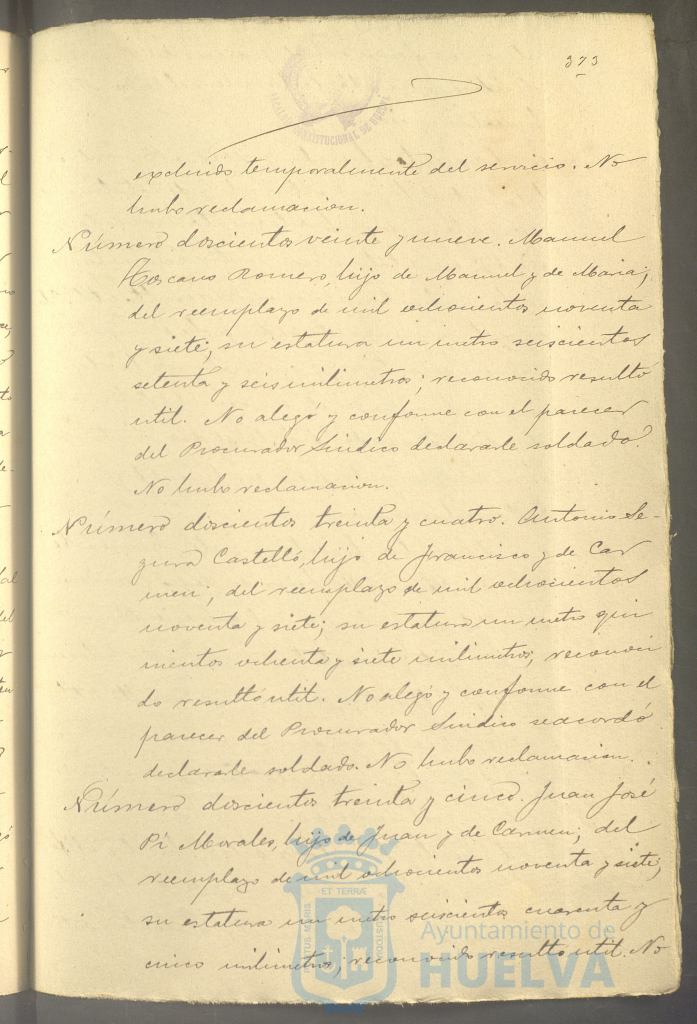 373
excluido temporalmente del servicio. No
hubo reclamacion.
Número doscientos veinte y nueve. Manuel
Toscano Romero, hijo de Manuel y de Maria;
del reemplazo de mil ochocientos noventa
y siete; su estatura un metro seiscientos
setenta y seis milimetros; reconocido resultó
util. No alegó y conforme con el parecer
del Procurador Sindico declararle soldado.
No hubo reclamacion.
Número doscientos treinta y cuatro. Antonio Se-
gura Castelló, hijo de Francisco y de Car
men; del reemplazo de mil ochocientos
noventa y siete; su estatura un metro qui
nientos ochenta y siete milimetros; reconoci
do resultó util. No alegó y conforme con el
parecer del Procurador Sindico se acordó
declararle soldado. No hubo reclamacion.
Número doscientos treinta y cinco. Juan José
Pi Morales, hijo de Juan y de Carmen; del
reemplazo de mil ochocientos noventa y siete;
su estatura un metro seiscientos cuarenta y
cinco milimetros; reconocido resultó util. No
ET TERRÆ
Ayuntamiento de
HUELVA